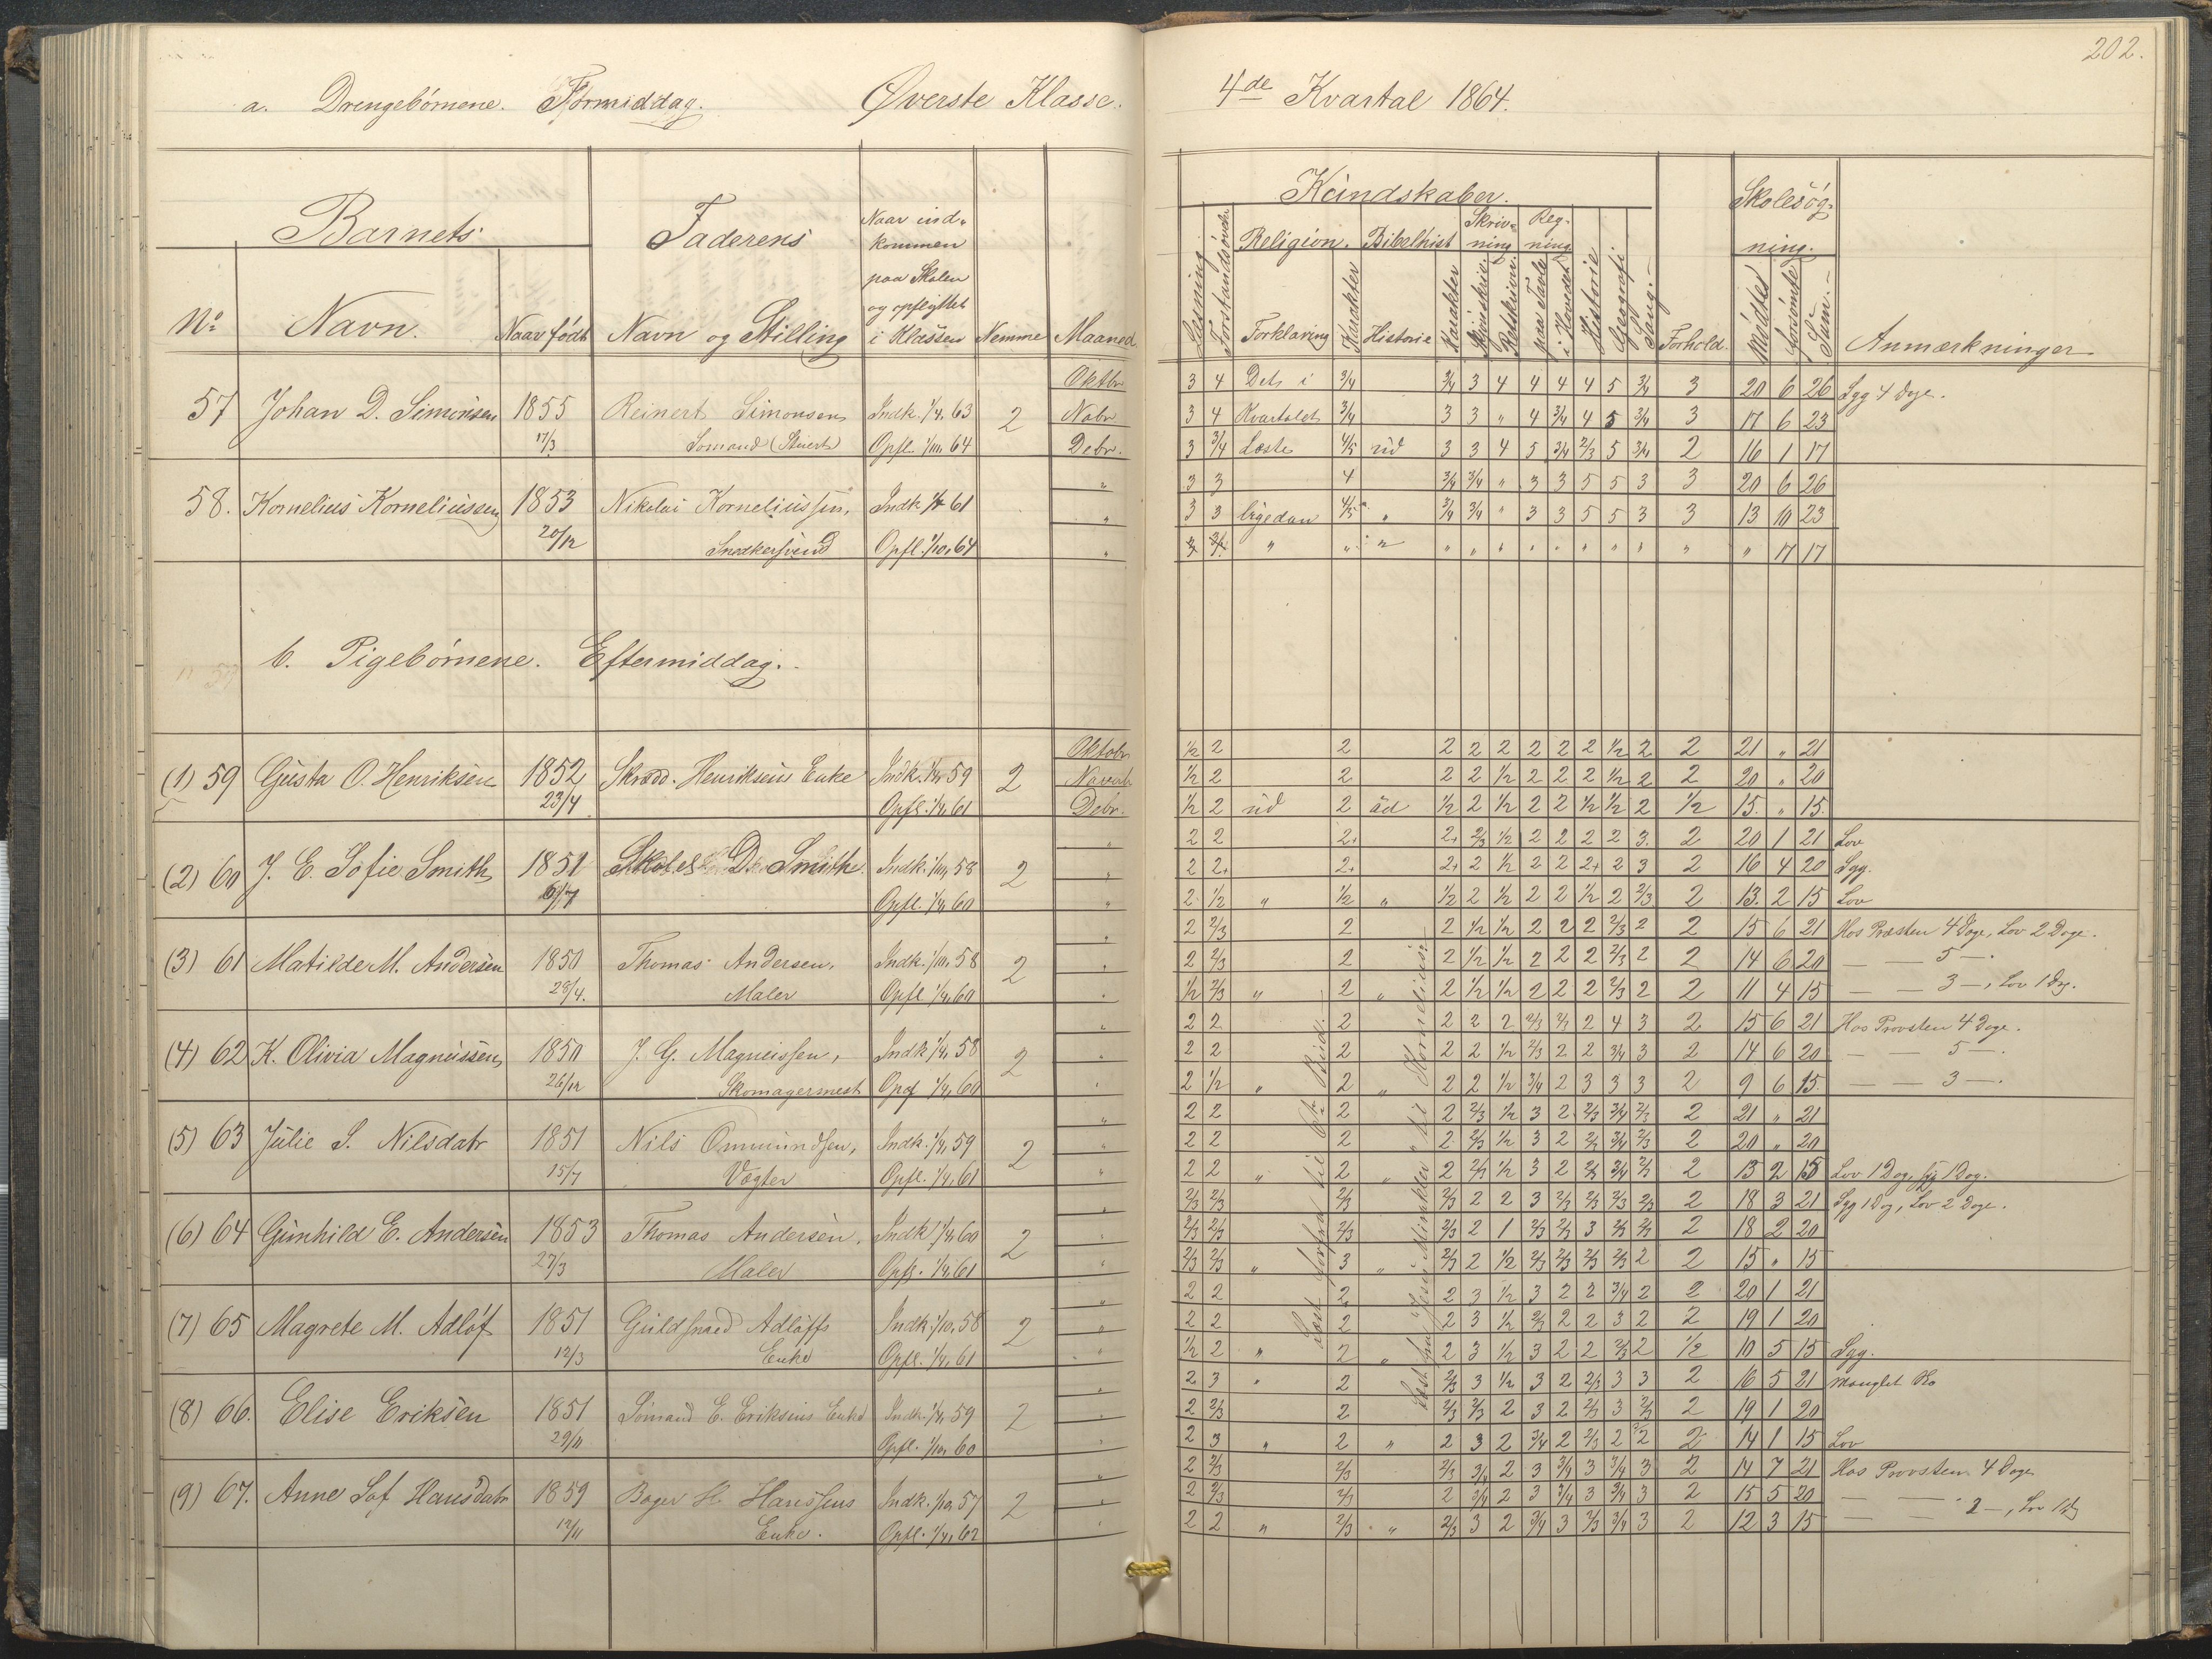 202.
a. Drengebörnene. Formiddag. Øverste Klasse. 4de Kvartal 1864.
Barnets Faderens Naar ind- kommen paa Skolen og opflyttet i Klassen Nemme Maaned
No Navn. Naar født Navn og Stilling
Kundskaber. Skolesøg- ning.
Religion. Bibelhist Skriv- ning Reg- ning
Læsning Forstandsøvelse Forklaring Karakter Historie Karakter Skjönskriv. Retskrivn. paa Tavle i Hovedet Historie Geografi Sang. Forhold. Mødte forsømte Sum. Anmærkninger
Oktbr 3 4 Dets i 3/4 3/4 3 4 4 4 4 5 3/4 3 20 6 26 Syg 4 Dage.
57 Johan D. Simonsen 1855 Reinert Simonsen Indk. 1/4, 63 2 Nobr 3 4 Kvartalet 3/4 3 3 " 4 3/4 4 5 3/4 3 17 6 23
17/3 Sømand (Stuert) Opfl. 1/10, 64 Debr. 3 3/4 Læste 4/5 ud 3 3 4 5 3/4 2/3 5 3/4 2 16 1 17
" 3 3 4 3/4 3/4 " 3 3 5 5 3 3 20 6 26
58. Kornelius Korneliussen 1853 Nikolai Korneliussen, Indk 1/4 61 " 3 3 ligedan 4/5 " 3/4 3/4 " 3 3 5 5 3 3 13 10 23
20/12 Snedkersvend Opfl. 1/10, 64 " " " " " " " " " " " " " " " 17 17
b. Pigebörnene. Eftermiddag.
Oktobr 1/2 2 2 2 2 2 2 2 2 1/2 2 2 21 " 21
(1) 59 Gusta O. Henriksen 1852 Skræd. Henriksens Enke Indk. 1/4, 59 2 Novmb 1/2 2 2 2 2 1/2 2 2 2 1/2 2 2 20 " 20
23/4 Opfl. 1/4, 61 Debr. 1/2 2 ud 2 ud 1/2 2 1/2 2 2 1/2 1/2 2 1/2 15. " 15.
" 2 2 2+ 2+ 2/3 1/2 2 2 2 2 3. 2 20 1 21 Lov
(2) 60 J. E. Sofie Smith 1851 Indk. 1/10, 58 2 " 2 2+ 2+ 2+ 2 1/2 2 2 2+ 2 3 2 16 4 20 Syg.
Opfl. 1/4, 60 " 2 1/2 " 1/2 " 1/2 2 1/2 2 2 1/2 2 2/3 2 13. 2 15 Lov
" 2 2/3 2 2 1/2 1/2 2 2 2 2/3 2 2 15 6 21 Hos Præsten 4 Dage, Lov 2 Dage.
(3) 61 Matilde M. Andersen 1850 Thomas Andersen, Indk. 1/10, 58 2 " 2 2/3 2 2 1/2 1/2 2 2 2 2/3 2 2 14 6 20 — — 5 —.
28/4. Maler Opfl 1/4, 60 " 1/2 2/3 " 2 " 2 1/2 1/2 2 2 2 2/3 2 2 11 4 15 — — 3 —, Lov 1 Dag.
" 2 2 2 2 2 2 2/3 2/3 2 4 3 2 15 6 21 Hos Provsten 4 Dage.
(4) 62 K. Olivia Magnussen, 1850 J. G. Magneissen, Indk 1/4, 58 2 " 2 2 2 2 2 1/2 2/3 2 2 3/4 3 2 14 6 20 — — 5 —.
26/12 Skomagermest Opfl 1/4, 60 " 2 1/2 " 2 " 2 2 1/2 3/4 2 3 3 3 2 9 6 15. — — 3 —.
" 2 2 2 2 2/3 1/2 3 2 2/3 3/4 2/3 2 21 " 21
(5) 63 Julie S. Nilsdatr 1851 Nils Ommundsen, Indk. 1/4, 59 2 " 2 2 2 2 2/3 1/2 3 2 2/3 3/4 2/3 2 20 " 20
15/7 Vægter Opfl. 1/4, 61 " 2 2 " 2 " 2 2/3 1/2 3 2 2/3 3/4 2/3 2 13 2 15 Lov 1 Dag, syg 1 Dag.
" 2/3 2/3 2/3 2/3 2 2 3 2/3 2/3 2/3 2/3 2 18 3 21 Syg 1 Dag, Lov 2 Dage.
(6) 64 Gunhild E. Andersen 1853 Thomas Andersen. Indk 1/4, 60 2 " 2/3 2/3 2/3 2/3 2 1 2/3 2/3 3 2/3 2/3 2 18 2 20
27/3 Maler Opfl. 1/4, 61 " 2/3 2/3 " 3 " 2/3 2 1/2 2/3 2/3 2/3 2/3 2 2 15 " 15
" 2 2 2 2 3 1/2 3 2 2 3/4 2 2 20 1 21
(7) 65 Magrete M. Adlöf 1851 Guldsmed Adlöffs Indk. 1/10, 58 2 " 2 2 2 2 3 1/2 2/3 2 2 3 2 2 19 1 20
12/3 Enke Opfl. 1/4, 61 " 1/2 2 " 2 " 2 3 1/2 3 2 2 2/3 2 1/2 10 5 15 Syg.
" 2 3 " 2 2/3 3 1/2 3 2 2/3 3 3 2 16 5 21 Manglet Sko
(8) 66. Elise Eriksen 1851 Sömand E. Eriksens Enke Indk. 1/4, 59 2 " 2 2/3 2 2/3 2/3 2 3 2 2/3 3 2/3 2 19 1 20
29/11 Opfl. 1/10, 60 " 2 3 " 2 " 2 3 2 3/4 2 2/3 2 2 2 14 1 15 Lov
" 2 2/3 2/3 2/3 3/4 2 3 3/4 3 3/4 3 2 14 7 21 Hos Provsten 4 Dage
(9) 67. Anne Sof Hansdatr 1859 Bager H. Hanssens Indk. 1/10, 57 2 " 2 2/3 2/3 2 3/4 2 3 3/4 3 3/4 3 2 15 5 20 — —
12/11 Enke. Opfl. 1/4, 62 " 2 2 " 2/3 " 2/3 3 2 3/4 3 2/3 3/4 3 2 12 3 15 — — 2 —, Lov 1 Dg